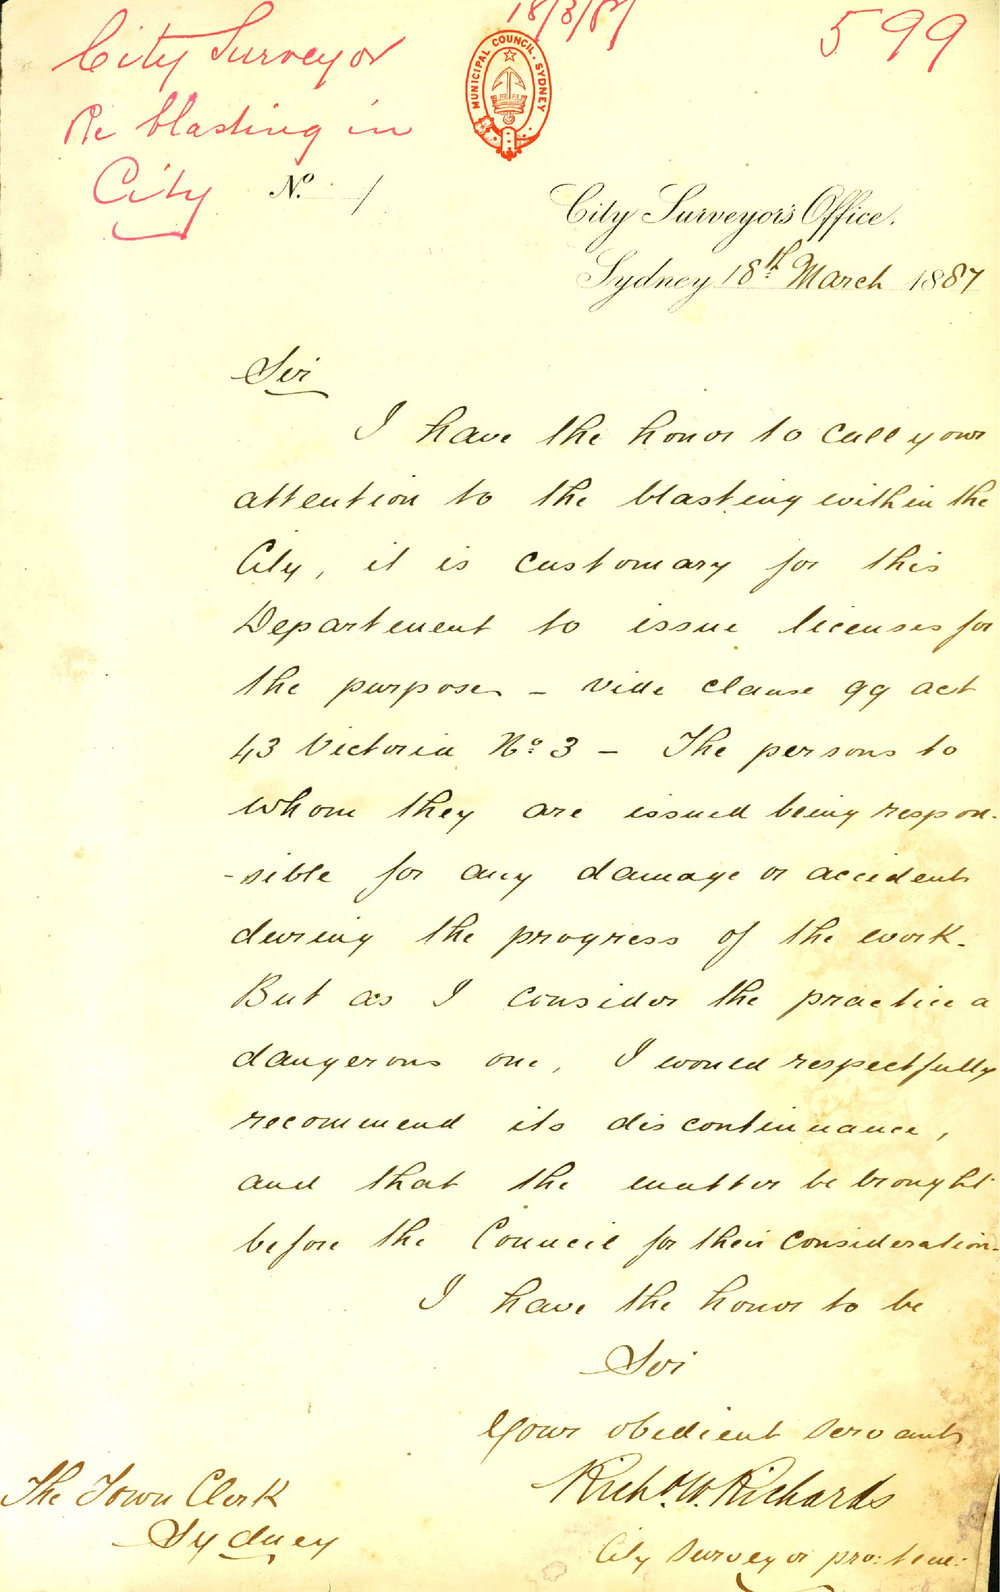 18/3/87
599
City Surveyor
Re blasting in
City
MUNICIPAL COUNCIL. SYDNEY
No. /
City Surveyor's Office.
Sydney 18th March 1887
Sir
I have the honor to call your
attention to the blasting within the
City, it is customary for this
Department to issue licenses for
the purpose - vide clause 99 act
43 Victoria No. 3 - The persons to
whom they are issued being respon-
-sible for any damage or accidents
during the progress of the work.
But as I consider the practice a
dangerous one, I would respectfully
recommend its discontinuance,
and that the matter be brought
before the Council for their consideration.
I have the honor to be
Sir
Your obedient servant
Richd. W. Richards
City Surveyor pro: tem:
The Town Clerk
Sydney